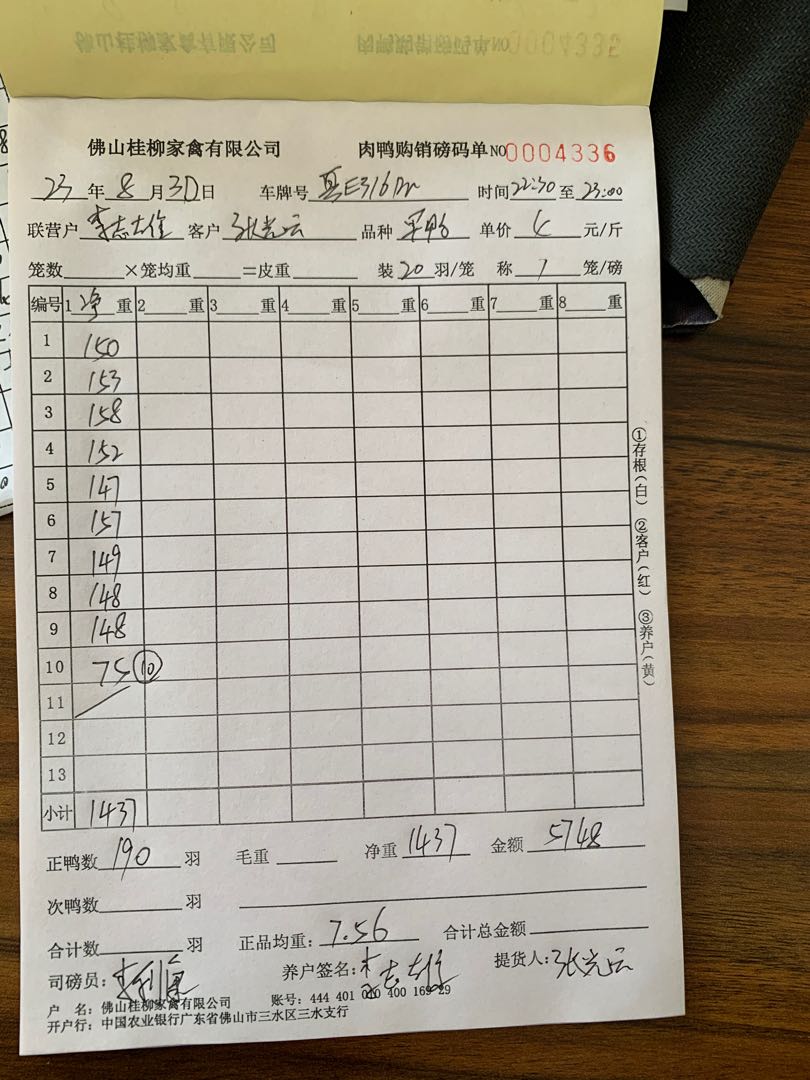 佛山桂柳家禽有限公司 肉鸭购销磅码单NO 0004336
23年8月30日 车牌号 E316 时间22:30至23:00
联营户 李志雄 客户 张光云 品种 单价 4 元/斤
笼数 ×笼均重 =皮重 装20羽/笼 称1笼/磅
编号 1净重 2 重 3 重 4 重 5 重 6 重 7 重 8 重
1 150
2 153
3 158
4 152
5 147
6 157
7 149
8 148
9 148
10 75 ⑩
11
12
13
小计 1437
正鸭数 190 羽 毛重 净重 1437 金额 5748
次鸭数 羽
合计数 羽 正品均重: 7.56 合计总金额
司磅员: 养户签名: 李志雄 提货人: 张光云
户 名: 佛山桂柳家禽有限公司 账号: 444 401 040 400 169 29
开户行: 中国农业银行广东省佛山市三水区三水支行
①存根(白) ②客户(红) ③养户(黄)